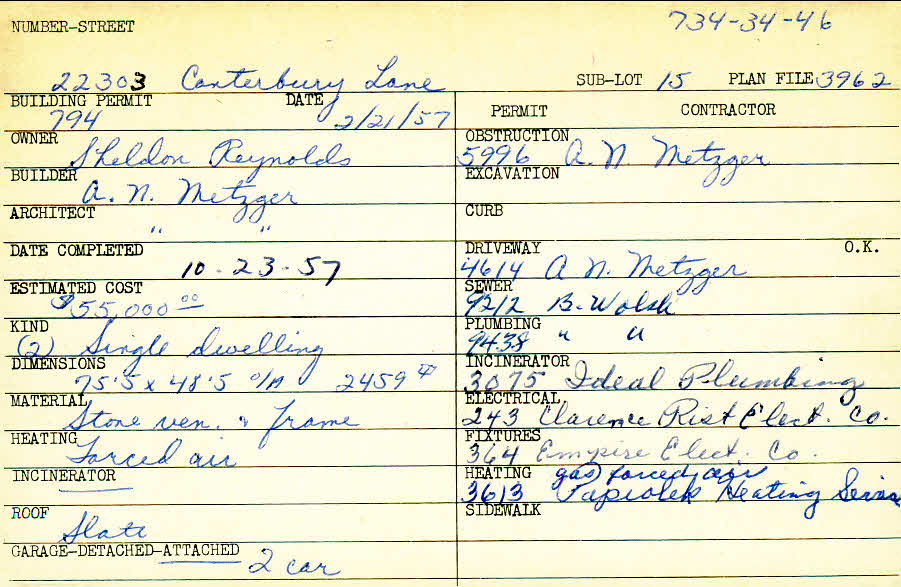 NUMBER-STREET 734-34-46
22303 Canterbury Lane SUB-LOT 15 PLAN FILE 3962
BUILDING PERMIT DATE
794 2/21/57
OWNER
Sheldon Reynolds
BUILDER
A. N. Metzger
ARCHITECT
" "
DATE COMPLETED
10-23-57
ESTIMATED COST
$55,000 00
KIND
(2) Single dwelling
DIMENSIONS
75'5 x 48'5 O/A 2459
MATERIAL
Stone ven. & frame
HEATING
Forced air
INCINERATOR
ROOF
Slate
GARAGE-DETACHED-ATTACHED
2 car
PERMIT CONTRACTOR
OBSTRUCTION
5996 A. N. Metzger
EXCAVATION
CURB
DRIVEWAY O.K.
4614 A N. Metzger
SEWER
9212 B. Walsh
PLUMBING
9438 " "
INCINERATOR
3075 Ideal Plumbing
ELECTRICAL
243 Clarence Rist Elect. Co.
FIXTURES
364 Empire Elect. Co.
HEATING gas forced air
3613 Heating
SIDEWALK